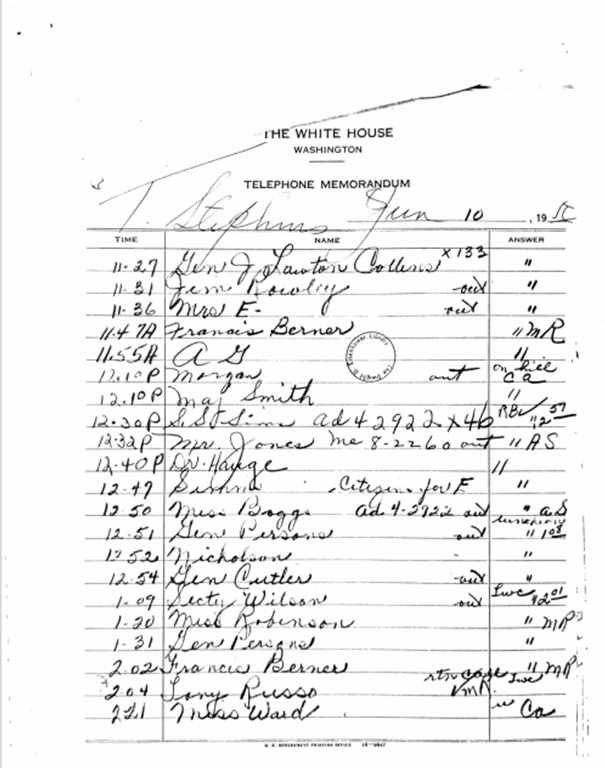 THE WHITE HOUSE
WASHINGTON
TELEPHONE MEMORANDUM
T. Stephens Jun 10, 19
TIME NAME ANSWER
11-27 Gen J. Lawton Collins x133 "
11-31 Jim Rowley out "
11-36 Mrs E- out "
11.47A Francis Berner " MR
11.55A A G "
12.10P Morgan out on hill Ca
12.10P Maj Smith "
12-30P ad 4 2922 x 46 RBC
12:32P Mr. Jones me 8-2260 out " AS
12-40P Dr. Hauge "
12-47 Citizens for E "
12.50 Miss Boggs ad 4-2922 out " aS
12-51 Gen Persons out luncheon "
12 52 Nicholson - "
12-54 Gen Cutler out "
1-09 Secty Wilson out Lwc
1-20 Miss Robinson " MR
1-31 Gen Persons "
2.02 Francis Berner " MR
2.04 Tony Russo rtn call Lwc
2 21 Miss Ward Ca
U. S. GOVERNMENT PRINTING OFFICE